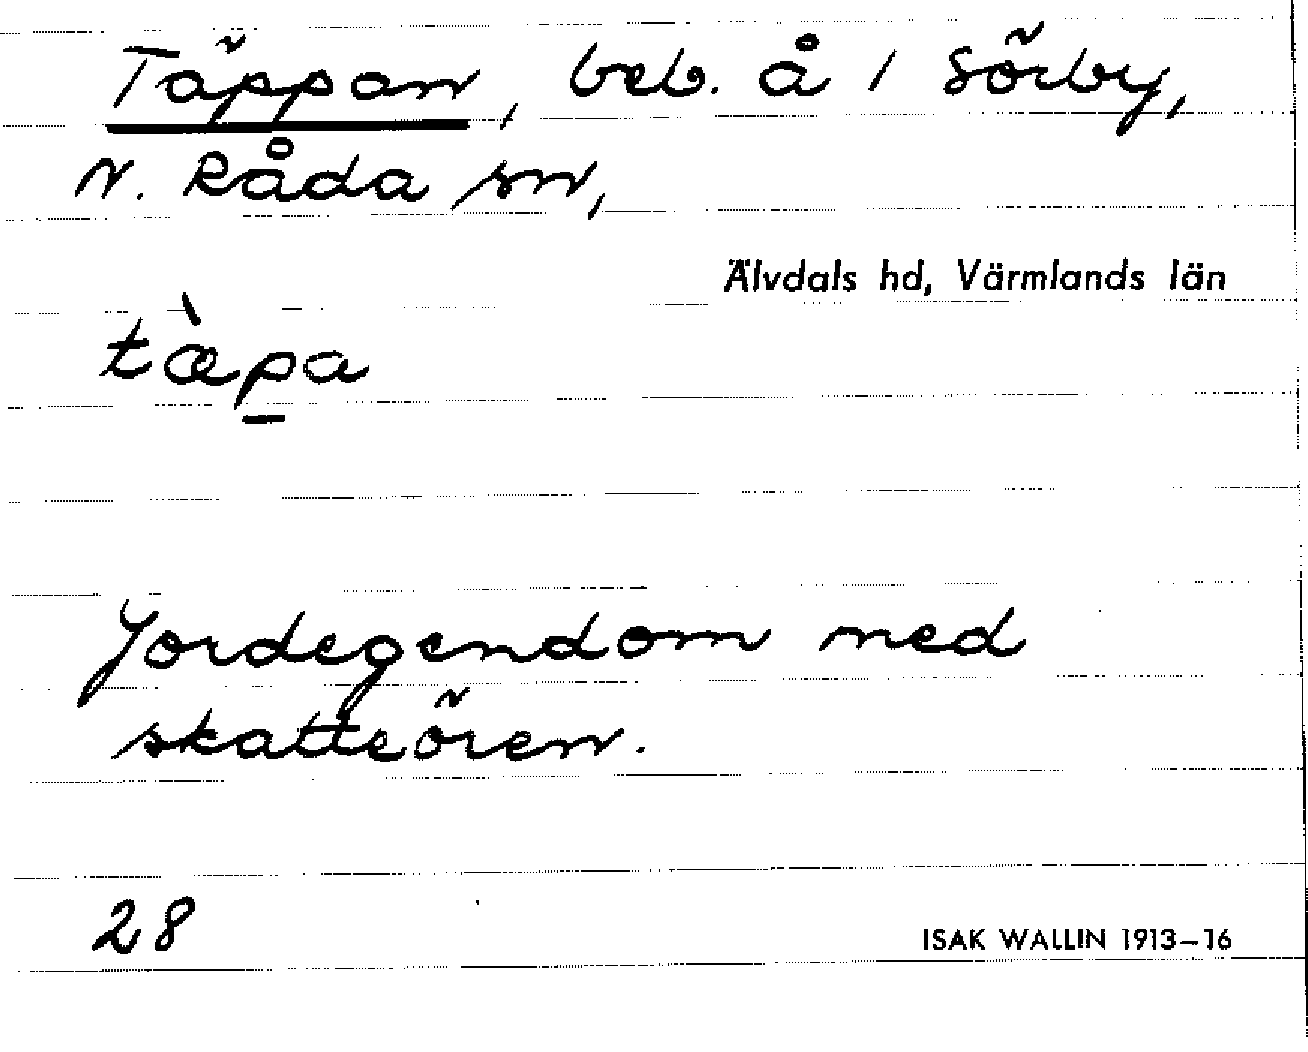 Täppan, beb. å 1 Sörby,
N. Råda sn,
Älvdals hd, Värmlands län
tæ̀pa
Jordegendom med
skatteören.
28
ISAK WALLIN 1913–16